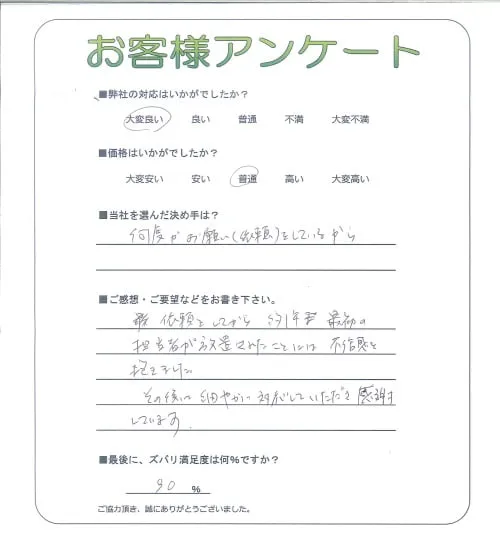 お客様アンケート
■弊社の対応はいかがでしたか？
大変良い 良い 普通 不満 大変不満
■価格はいかがでしたか？
大変安い 安い 普通 高い 大変高い
■当社を選んだ決め手は？
何度かお願い(依頼)をしているから
■ご感想・ご要望などをお書き下さい。
依頼をしてから 約1年 最初の
担当者が放置されたことには 不信感を
抱きました
その後は 細やかに対応していただき 感謝
しています.
■最後に、ズバリ満足度は何％ですか？
90 ％
ご協力頂き、誠にありがとうございました。